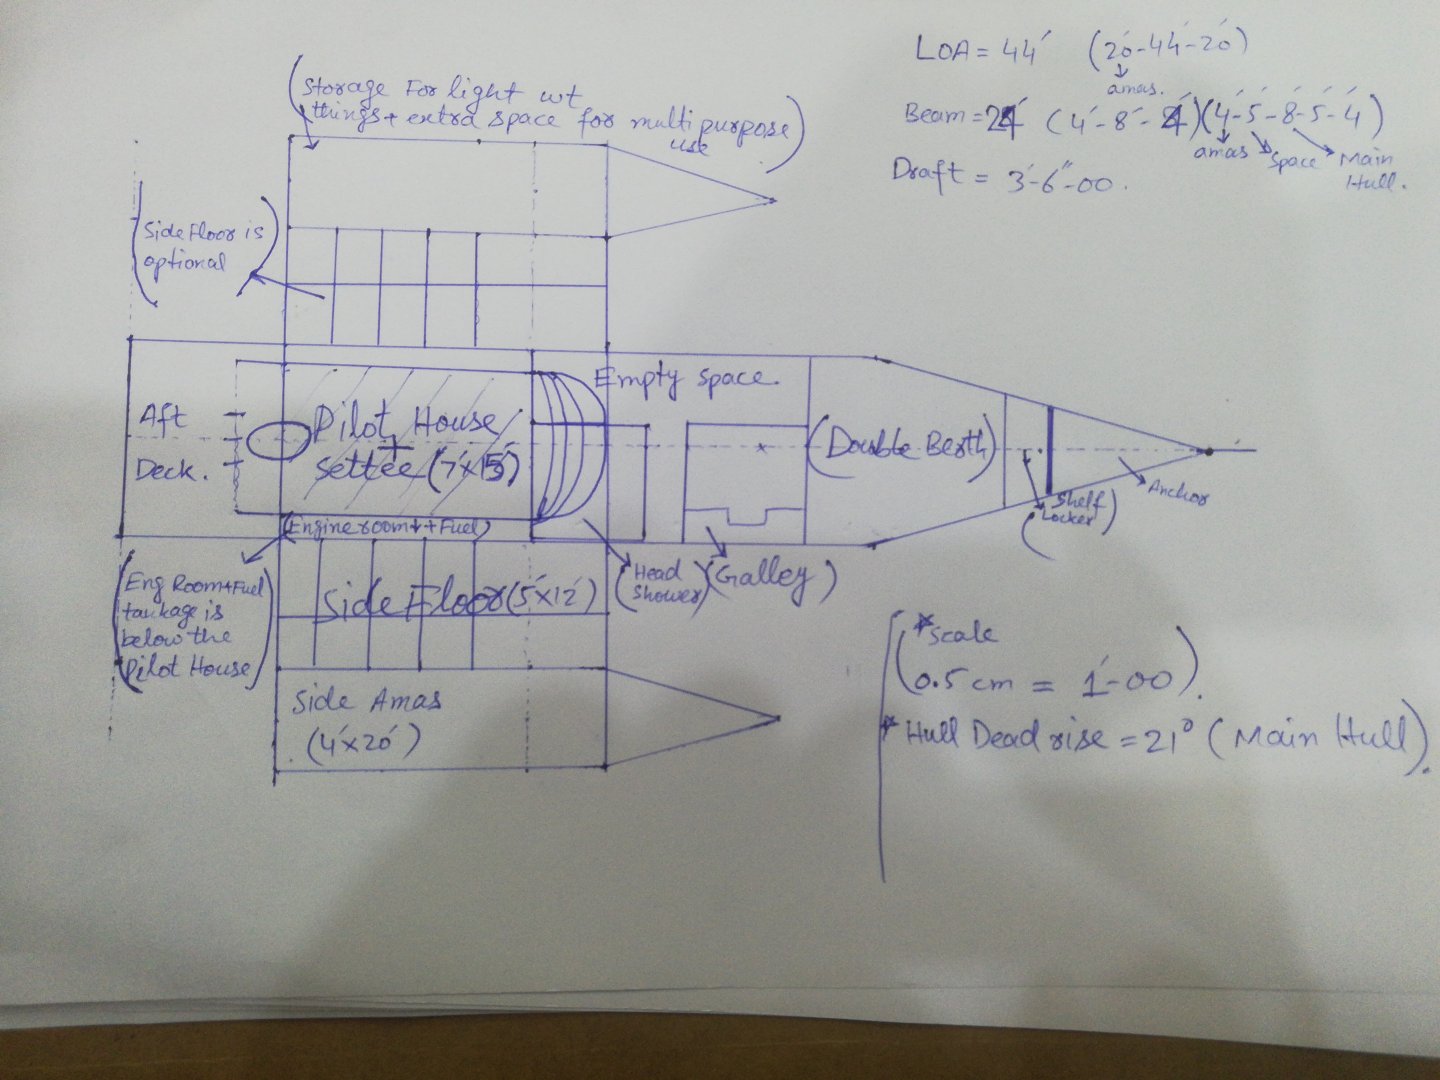 LOA = 44' (20'-44'-20')
amas.
Beam = 24' (4'-8'-4') (4'-5'-8'-5'-4')
amas Space Main
Hull.
Draft = 3'-6"-00.
(Storage For light wt
things + extra space for multipurpose)
use
(Side Floor is
optional)
Empty space.
Aft
Deck.
Pilot House
+
Settee (7'x15')
(Double Berth)
(Engine room ↓ + Fuel)
(Shelf
Locker)
Anchor
(Head
Shower)
(Galley)
(Eng Room + Fuel
tankage is
below the
Pilot House)
Side Floor (5'x12')
Side Amas
(4'x20')
* Scale
(0.5 cm = 1'-00).
* Hull Deadrise = 21° (Main Hull).